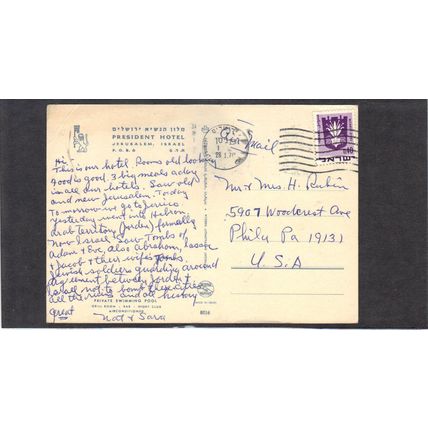 מלון הנשיא ירושלים
PRESIDENT HOTEL
JERUSALEM, ISRAEL
P.O.B. 6 ת.ד. 6
Hi
This is our hotel. Rooms old looking
Food is good. 3 big meals a day
in all our hotels. Saw old
and new Jerusalem. Today
Tomorrow we go to Jerico
Yesterday went into Hebron
Arab Territory (Jordan) formally
Now Israel. Saw Tombs of
Adam & Eve, also Abraham, Isaac
& Jacob & their wifes tombs.
Jewish soldiers guarding around
agreement between Jordan &
Israel not to bomb these cities
all the ruins and all history
great
PRIVATE SWIMMING POOL
GRILL-ROOM - BAR - NIGHT CLUB
AIRCONDITIONED
Nat & Sara
8056
air mail
Mr & Mrs H. Rubin
5907 Woodcrest Ave
Phily Pa 19131
U.S.A
ישראל
0.10